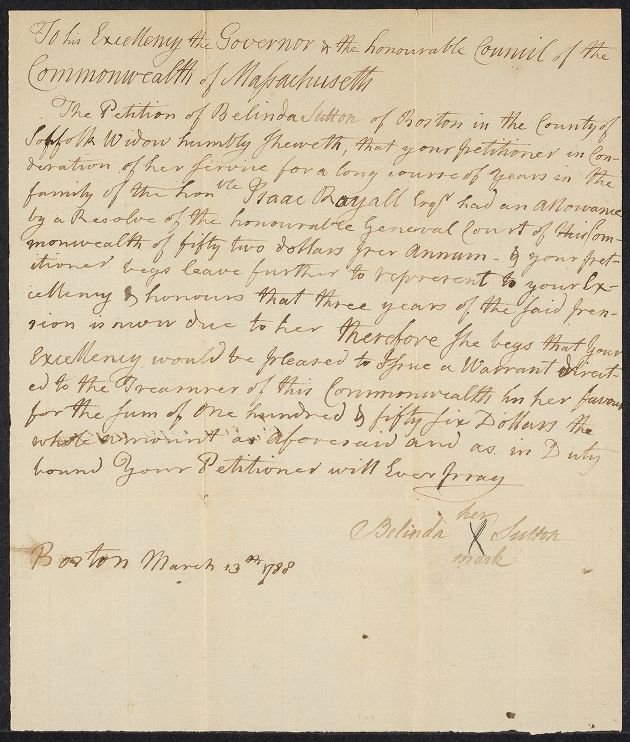 To his Excellency the Governor & the honourable Council of the
Commonwealth of Massachusetts
The Petition of Belinda Sutton of Boston in the County of
Soffolk Widow humbly sheweth, that your petitioner in Con-
deration of her service for a long course of years in the
family of the honble Isaac Royall Esqr had an allowance
by a Resolve of the honourable General Court of this Com-
monwealth of fifty two dollars per Annum - & your pet-
itioner begs leave further to represent to your Ex-
cellency & honours that three years of the said pen-
sion is now due to her therefore she begs that your
Excellency would be pleased to Issue a Warrant direct-
ed to the Treasurer of this Commonwealth in her favour
for the sum of one hundred & fifty six Dollars the
whole amount as aforesaid and as in Duty
bound Your Petitioner will Ever pray
her
Belinda X Sutton
mark
Boston March 13th 1788